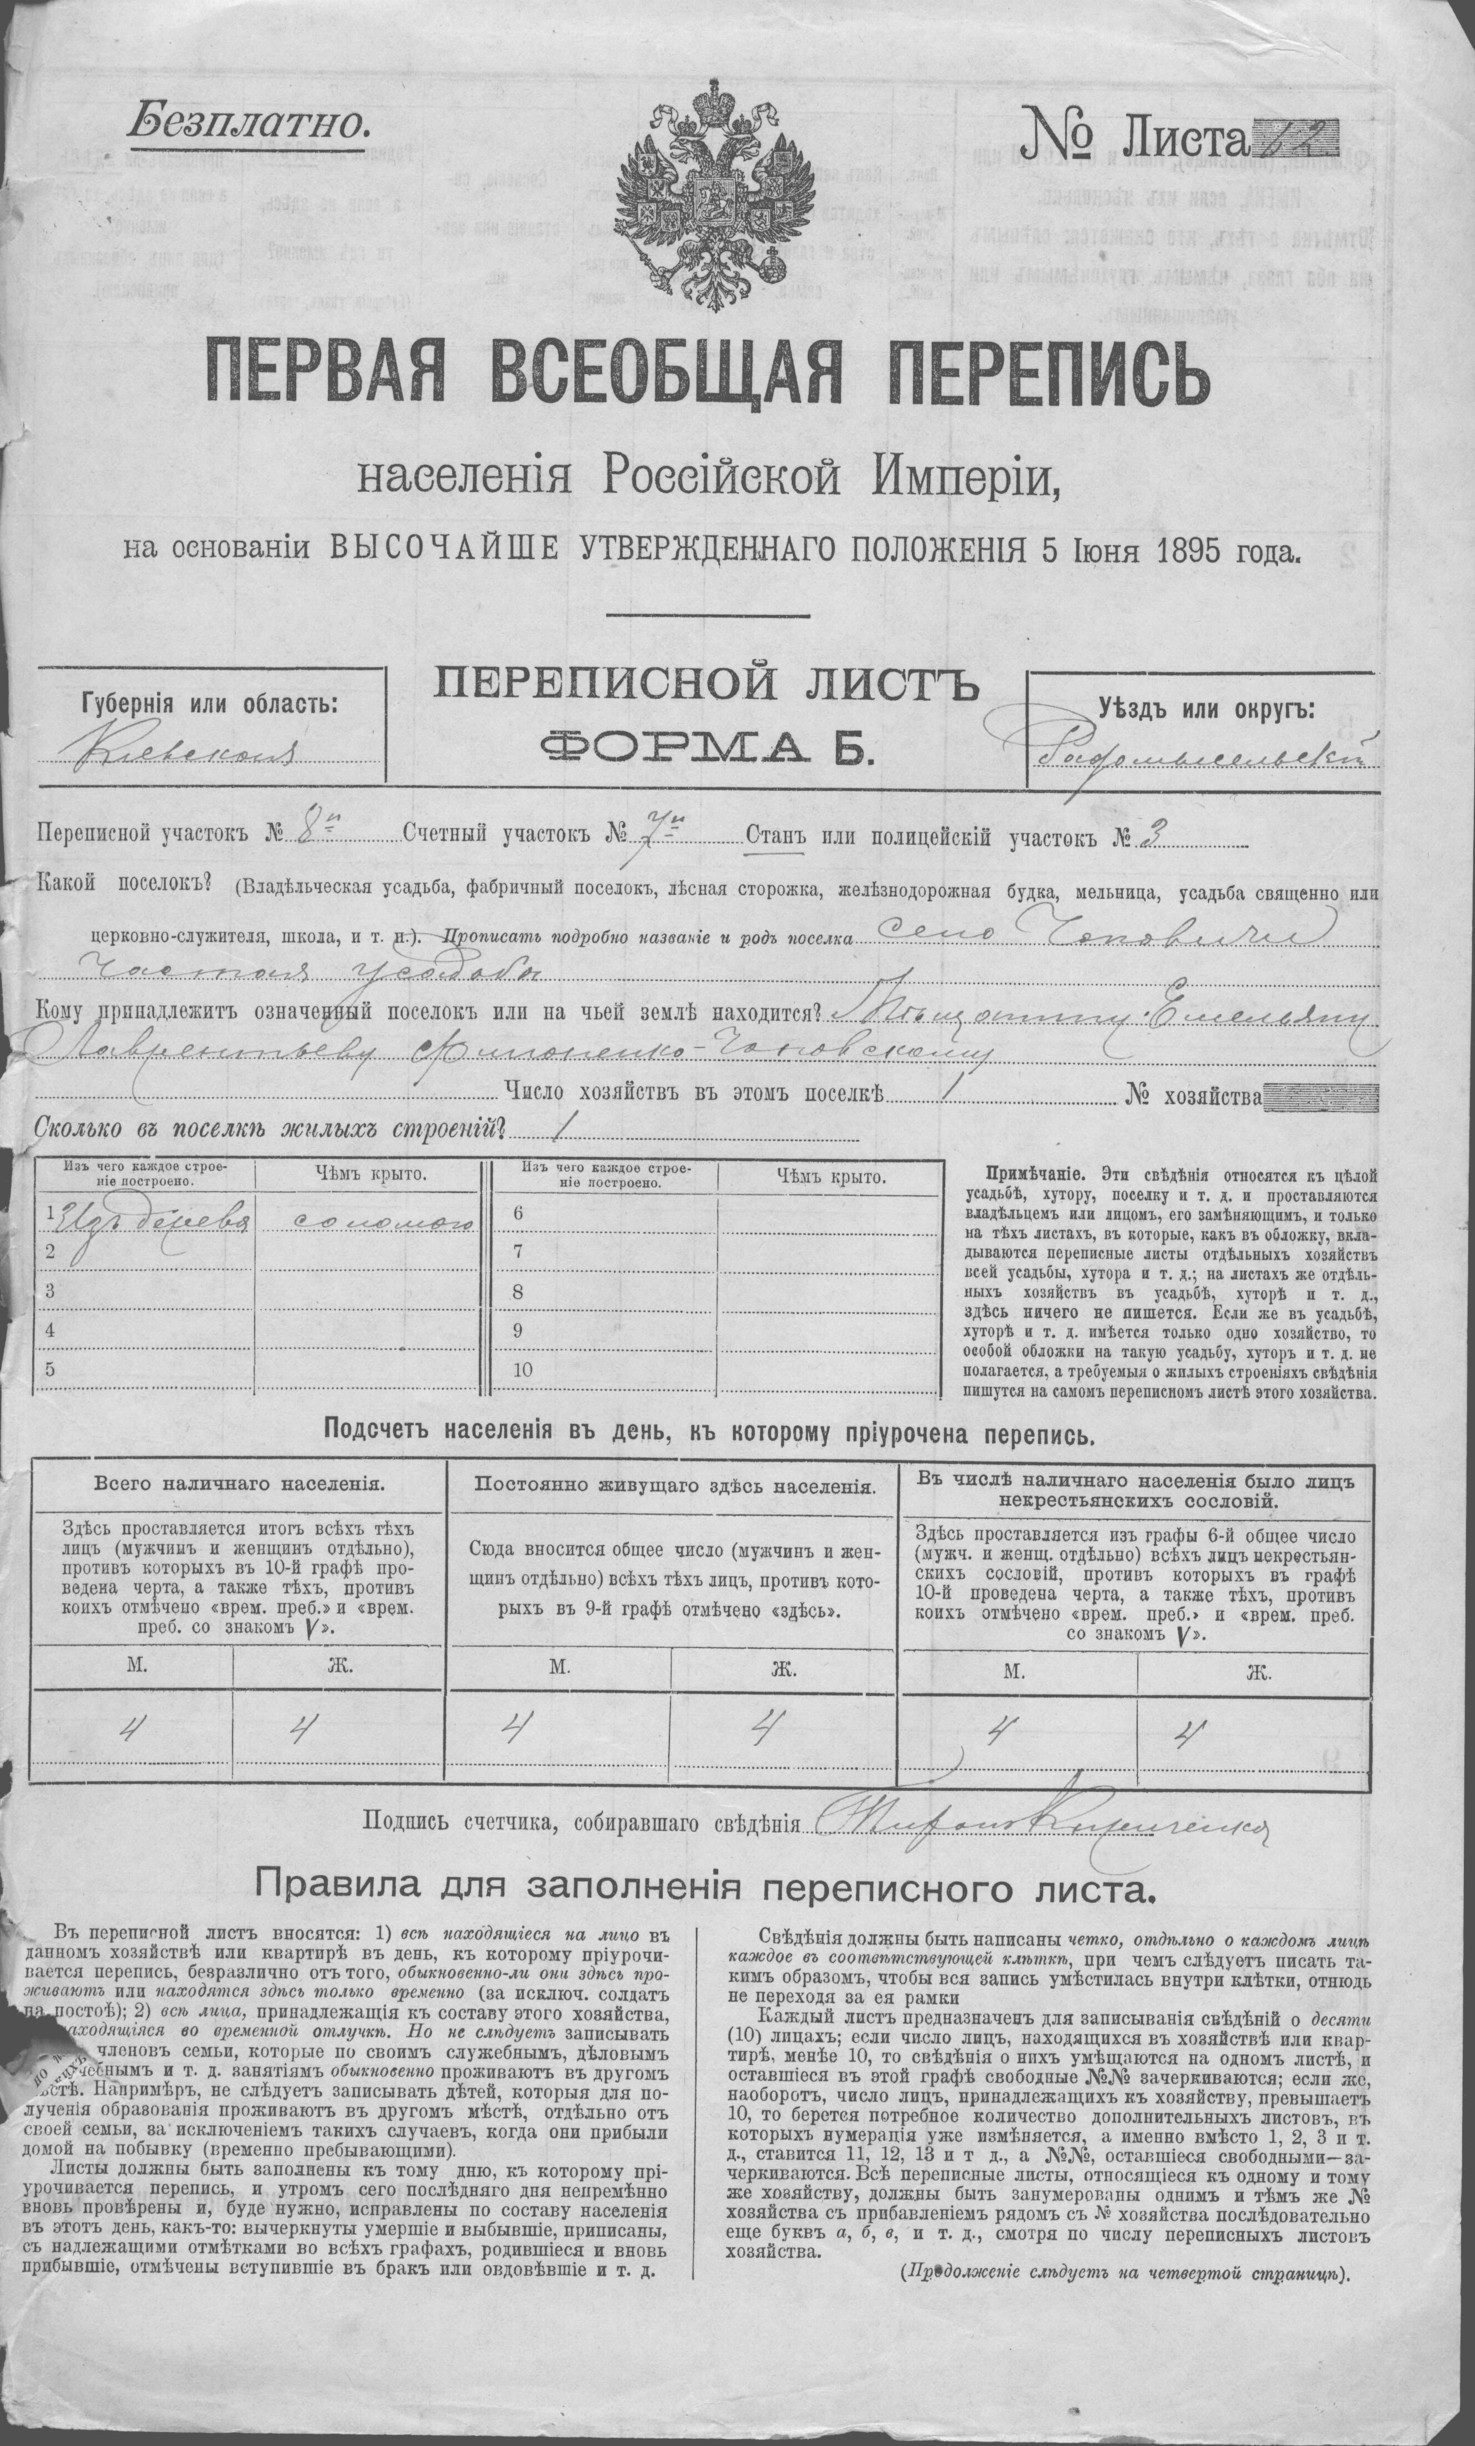 Безплатно.
№ Листа 62
ПЕРВАЯ ВСЕОБЩАЯ ПЕРЕПИСЬ
населенія Россійской Имперіи,
на основаніи ВЫСОЧАЙШЕ УТВЕРЖДЕННАГО ПОЛОЖЕНІЯ 5 Іюня 1895 года.
ПЕРЕПИСНОЙ ЛИСТЪ
ФОРМА Б.
Губернія или область:
Кіевская
Уѣздъ или округъ:
Радомысельскій
Переписной участокъ № 8й Счетный участокъ № 7й Станъ или полицейскій участокъ № 3
Какой поселокъ? (Владѣльческая усадьба, фабричный поселокъ, лѣсная сторожка, желѣзнодорожная будка, мельница, усадьба священно или
церковно-служителя, школа, и т. н.). Прописать подробно названіе и родъ поселка село Чоповичи
Частная усадьба
Кому принадлежитъ означенный поселокъ или на чьей землѣ находится? Мѣщанину Емельяну
Лаврентьеву Филоненко-Чоповскому
Число хозяйствъ въ этомъ поселкѣ 1 № хозяйства
Сколько въ поселкѣ жилыхъ строеній? 1
Изъ чего каждое строе-
ніе построено.
Чѣмъ крыто.
Изъ чего каждое строе-
ніе построено.
Чѣмъ крыто.
1 Изъ дерева соломою 6
2 7
3 8
4 9
5 10
Примѣчаніе. Эти свѣдѣнія относятся къ цѣлой
усадьбѣ, хутору, поселку и т. д. и проставляются
владѣльцемъ или лицомъ, его замѣняющимъ, и только
на тѣхъ листахъ, въ которые, какъ въ обложку, вкла-
дываются переписные листы отдѣльныхъ хозяйствъ
всей усадьбы, хутора и т. д.; на листахъ же отдѣль-
ныхъ хозяйствъ въ усадьбѣ, хуторѣ и т. д.,
здѣсь ничего не пишется. Если же въ усадьбѣ,
хуторѣ и т. д. имѣется только одно хозяйство, то
особой обложки на такую усадьбу, хуторъ и т. д. не
полагается, а требуемыя о жилыхъ строеніяхъ свѣдѣнія
пишутся на самомъ переписномъ листѣ этого хозяйства.
Подсчетъ населенія въ день, къ которому пріурочена перепись.
Всего наличнаго населенія.
Здѣсь проставляется итогъ всѣхъ тѣхъ
лицъ (мужчинъ и женщинъ отдѣльно),
противъ которыхъ въ 10-й графѣ про-
ведена черта, а также тѣхъ, противъ
коихъ отмѣчено «врем. преб.» и «врем.
преб. со знакомъ V».
Постоянно живущаго здѣсь населенія.
Сюда вносится общее число (мужчинъ и жен-
щинъ отдѣльно) всѣхъ тѣхъ лицъ, противъ кото-
рыхъ въ 9-й графѣ отмѣчено «здѣсь».
Въ числѣ наличнаго населенія было лицъ
некрестьянскихъ сословій.
Здѣсь проставляется изъ графы 6-й общее число
(мужч. и женщ. отдѣльно) всѣхъ лицъ некрестьян-
скихъ сословій, противъ которыхъ въ графѣ
10-й проведена черта, а также тѣхъ, противъ
коихъ отмѣчено «врем. преб.» и «врем. преб.
со знакомъ V».
М. Ж. М. Ж. М. Ж.
4 4 4 4 4 4
Подпись счетчика, собиравшаго свѣдѣнія
Правила для заполненія переписного листа.
Въ переписной листъ вносятся: 1) всѣ находящіеся на лицо въ
данномъ хозяйствѣ или квартирѣ въ день, къ которому пріурочи-
вается перепись, безразлично отъ того, обыкновенно-ли они здѣсь про-
живаютъ или находятся здѣсь только временно (за исключ. солдатъ
на постоѣ); 2) всѣ лица, принадлежащія къ составу этого хозяйства,
находящіяся во временной отлучкѣ. Но не слѣдуетъ записывать
членовъ семьи, которые по своимъ служебнымъ, дѣловымъ
чебнымъ и т. д. занятіямъ обыкновенно проживаютъ въ другомъ
стѣ. Напримѣръ, не слѣдуетъ записывать дѣтей, которыя для по-
лученія образованія проживаютъ въ другомъ мѣстѣ, отдѣльно отъ
своей семьи, за исключеніемъ такихъ случаевъ, когда они прибыли
домой на побывку (временно пребывающими).
Листы должны быть заполнены къ тому дню, къ которому прі-
урочивается перепись, и утромъ сего послѣдняго дня непремѣнно
вновь провѣрены и, буде нужно, исправлены по составу населенія
въ этотъ день, какъ-то: вычеркнуты умершіе и выбывшіе, приписаны,
съ надлежащими отмѣтками во всѣхъ графахъ, родившіеся и вновь
прибывшіе, отмѣчены вступившіе въ бракъ или овдовѣвшіе и т. д.
Свѣдѣнія должны быть написаны четко, отдѣльно о каждомъ лицѣ
каждое въ соотвѣтствующей клѣткѣ, при чемъ слѣдуетъ писать та-
кимъ образомъ, чтобы вся запись умѣстилась внутри клѣтки, отнюдь
не переходя за ея рамки
Каждый листъ предназначенъ для записыванія свѣдѣній о десяти
(10) лицахъ; если число лицъ, находящихся въ хозяйствѣ или квар-
тирѣ, менѣе 10, то свѣдѣнія о нихъ умѣщаются на одномъ листѣ, и
оставшіеся въ этой графѣ свободные №№ зачеркиваются; если же,
наоборотъ, число лицъ, принадлежащихъ къ хозяйству, превышаетъ
10, то берется потребное количество дополнительныхъ листовъ, въ
которыхъ нумерація уже измѣняется, а именно вмѣсто 1, 2, 3 и т.
д., ставится 11, 12, 13 и т д., а №№, оставшіеся свободными—за-
черкиваются. Всѣ переписные листы, относящіеся къ одному и тому
же хозяйству, должны быть занумерованы однимъ и тѣмъ же №
хозяйства съ прибавленіемъ рядомъ съ № хозяйства послѣдовательно
еще буквъ а, б, в, и т. д., смотря по числу переписныхъ листовъ
хозяйства.
(Продолженіе слѣдуетъ на четвертой страницѣ).